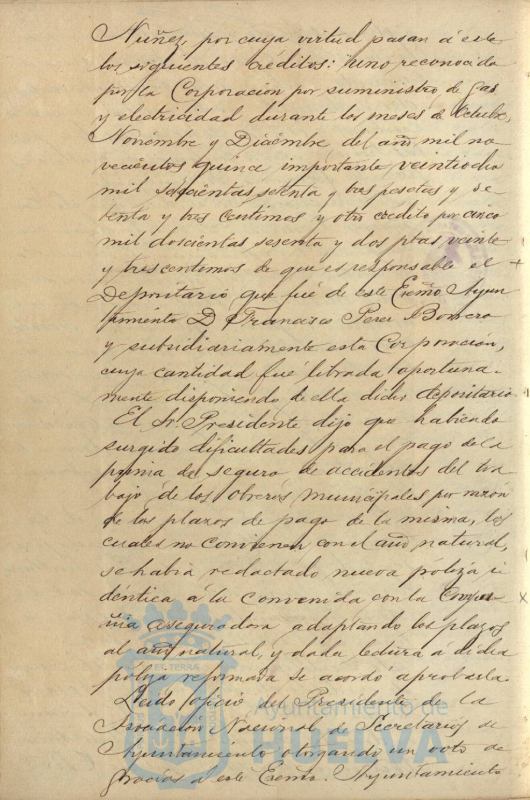 Nuñez, por cuya virtud pasan á este
los siguientes créditos: uno reconocido
por la Corporación por suministro de gas
y electricidad durante los meses de Octubre,
Noviembre y Diciembre del año mil no
vecientos quince importante veintiocho
mil seiscientas sesenta y tres pesetas y se
tenta y tres centimos y otro credito por cinco
mil doscientas sesenta y dos ptas veinte
y tres centimos de que es responsable el +
Depositario que fué de este Excmo Ayun
tamiento D Francisco Perez Borrero
y subsidiariamente esta Corporación,
cuya cantidad fué librada oportuna-
mente disponiendo de ella dicho depositario
El Sr. Presidente dijo que habiendo
surgido dificultades para el pago de la
prima del seguro de accidentes del tra
bajo de los obreros municipales por razón
de los plazos de pago de la misma, los
cuales no convienen con el año natural,
se habia redactado nueva póliza i
dentica á la convenida con la Compa- x
ñia aseguradora adaptando los plazos
al año natural, y dada lectura á dicha
póliza reformada se acordó aprobarla.
Leido oficio del Presidente de la
Asociación Nacional de Secretarios de
Ayuntamiento otorgando un voto de
gracias á este Excmo. Ayuntamiento
Ayuntamiento de
HUELVA